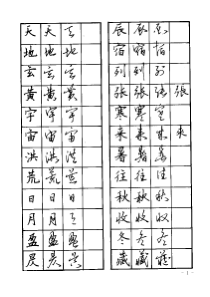 天 天 天
地 地 地
玄 玄 玄
黄 黄 黄
宇 宇 宇
宙 宙 宙
洪 洪 洪
荒 荒 荒
日 日 日
月 月 月
盈 盈 盈
昃 昃 昃
辰 辰 辰
宿 宿 宿
列 列 列
张 张 张 張
寒 寒 寒
来 来 来 來
暑 暑 暑
往 往 往
秋 秋 秋
收 收 收
冬 冬 冬
藏 藏 藏
· 1 ·